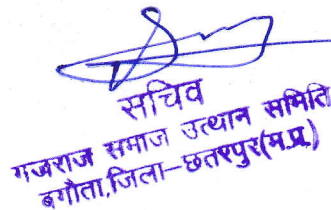 सचिव
गजराज समाज उत्थान समिति
बगौता,जिला-छतरपुर(म.प्र.)